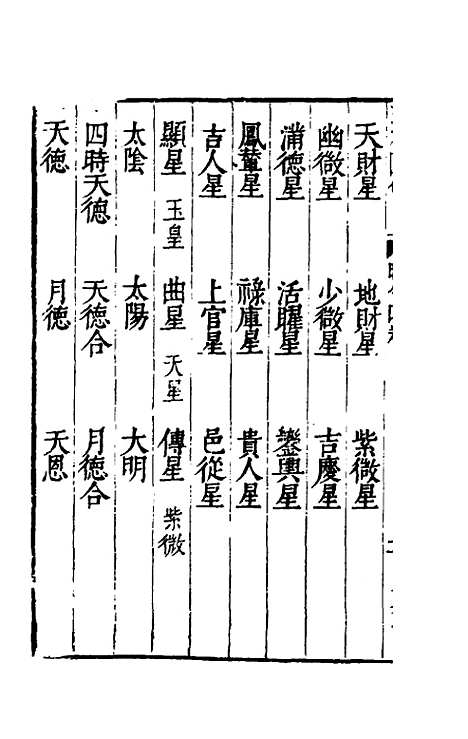 天財星 地財星 紫微星
幽微星 少微星 吉慶星
滿德星 活曜星 鑾輿星
鳳輦星 祿庫星 貴人星
吉人星 上官星 邑從星
顯星 玉皇 曲星 天星 傳星 紫微
太陰 太陽 大明
四時天德 天德合 月德合
天德 月德 天恩